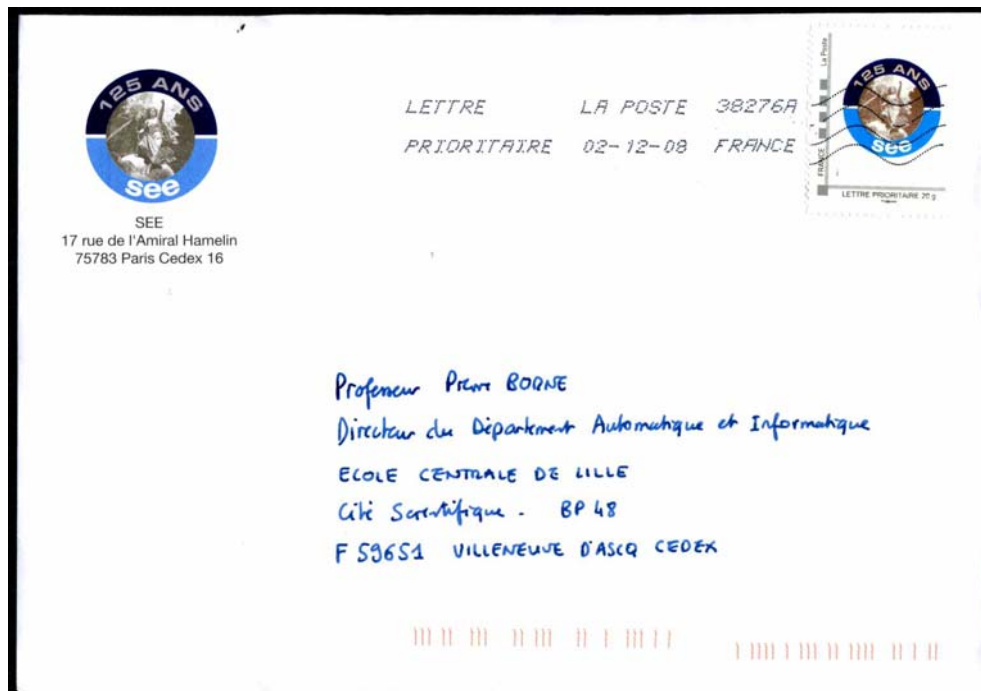 125 ANS
see
SEE
17 rue de l'Amiral Hamelin
75783 Paris Cedex 16
LETTRE LA POSTE 38276A
PRIORITAIRE 02-12-08 FRANCE
La Poste
FRANCE
125 ANS
see
LETTRE PRIORITAIRE 20 g
Professeur Pierre BORNE
Directeur du Département Automatique et Informatique
ECOLE CENTRALE DE LILLE
Cité Scientifique - BP 48
F 59651 VILLENEUVE D'ASCQ CEDEX